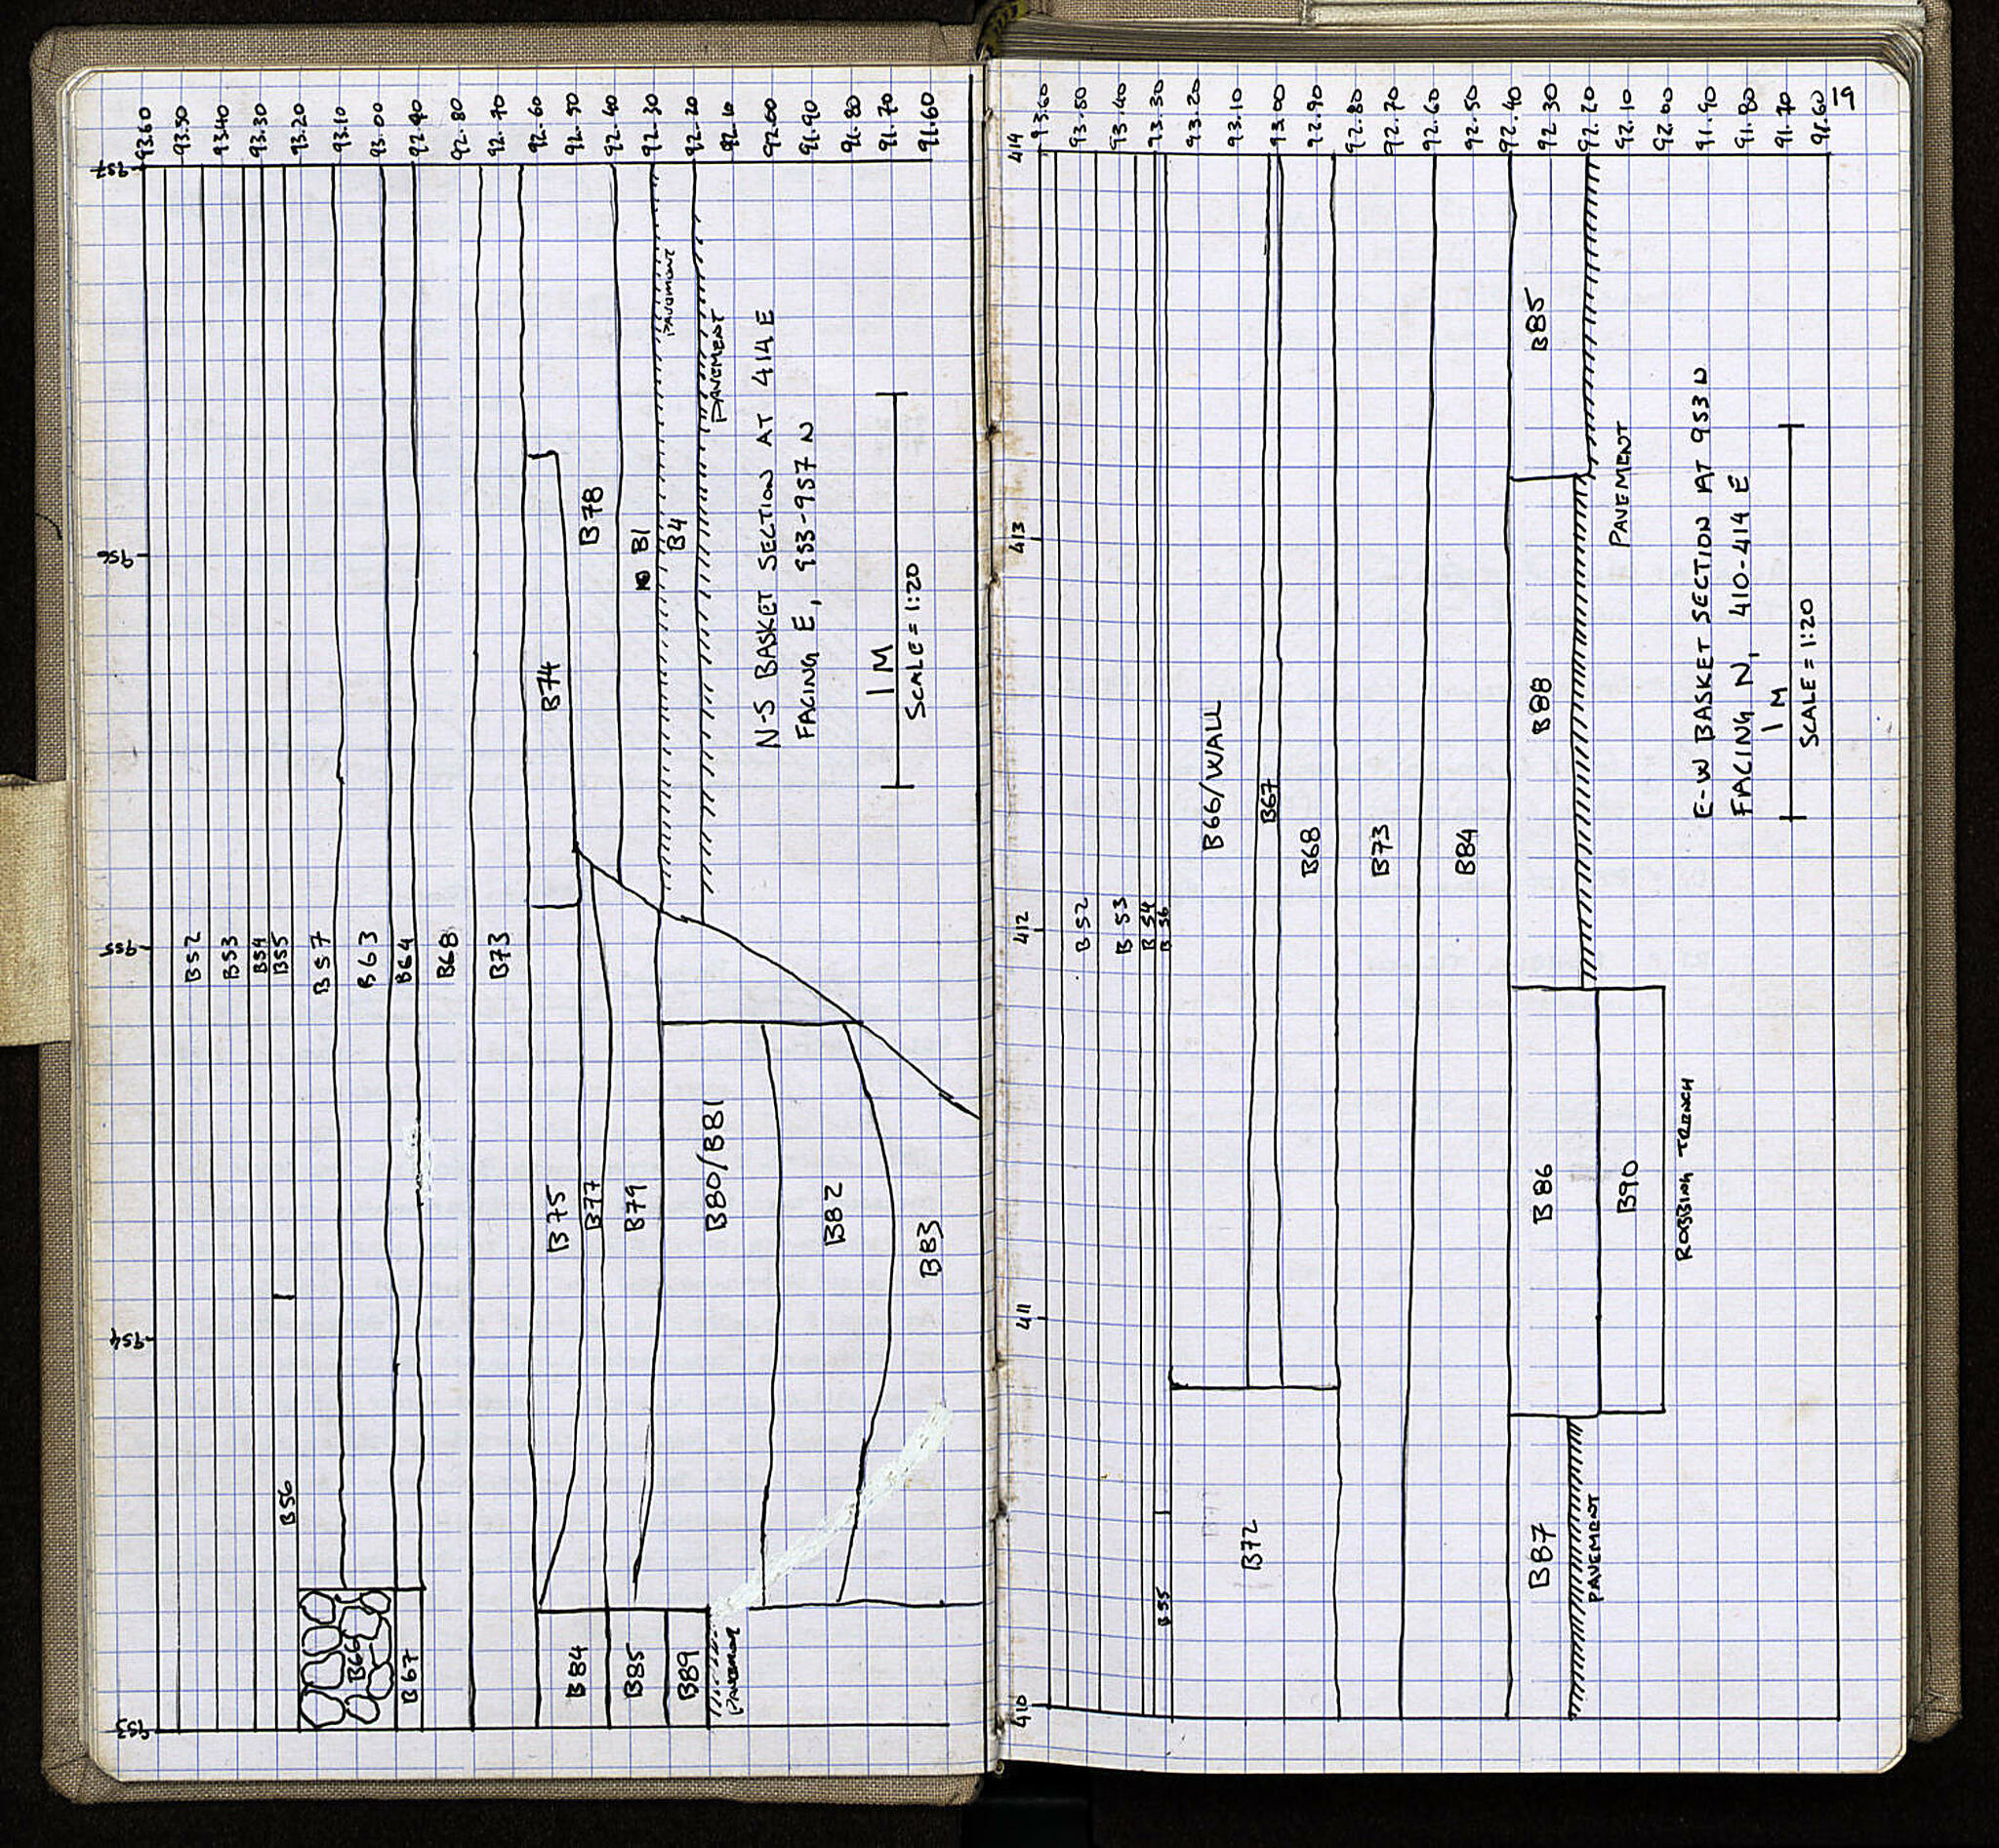 93.60
93.50
93.40
93.30
93.20
93.10
93.00
92.90
92.80
92.70
92.60
92.50
92.40
92.30
92.20
92.10
92.00
91.90
91.80
91.70
91.60
957
956
955
954
953
B52
B53
B54
B55
B56
B57
B63
B64
B66
B67
B68
B73
B74
B75
B77
B78
B79
B1
B4
PAVEMENT
PAVEMENT
B80/B81
B82
B83
B84
B85
B89
PAVEMENT
N-S BASKET SECTION AT 414 E
FACING E, 953-957 N
1 M
SCALE = 1:20
19
93.60
93.50
93.40
93.30
93.20
93.10
93.00
92.90
92.80
92.70
92.60
92.50
92.40
92.30
92.20
92.10
92.00
91.90
91.80
91.70
91.60
414
413
412
411
410
B52
B53
B54
B56
B55
B66/WALL
B67
B68
B72
B73
B84
B85
B88
B86
B87
B90
PAVEMENT
PAVEMENT
ROBBING TRENCH
E-W BASKET SECTION AT 953 N
FACING N, 410-414 E
1 M
SCALE = 1:20